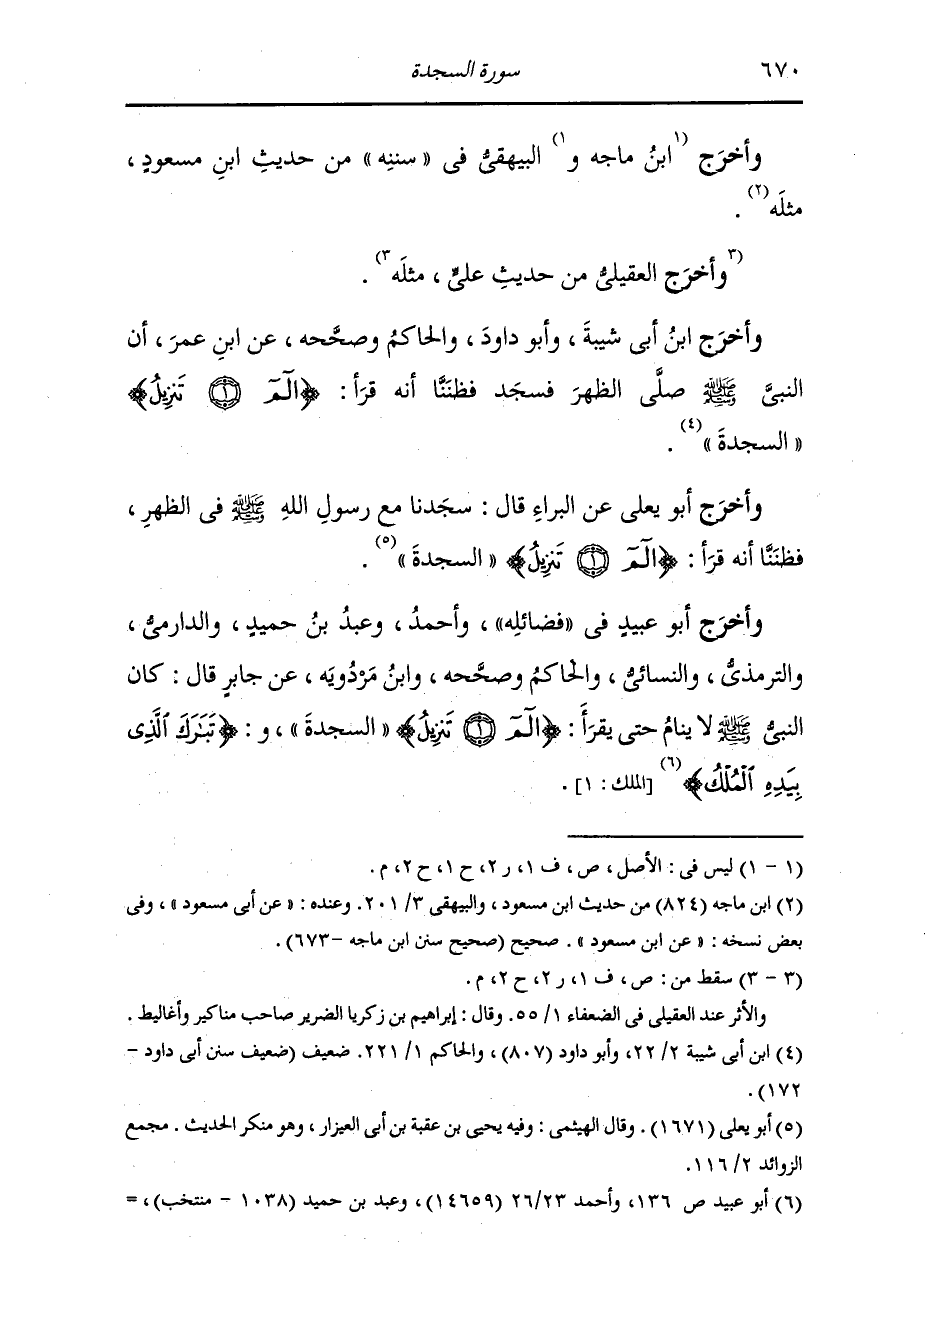 ٦٧٠ سورة السجدة
وأخرَج (١ابنُ ماجه و١) البيهقىُّ فى « سننِه » من حديثِ ابنِ مسعودٍ ،
مثلَه(٢) .
(٣وأخرَج العقيلىُّ من حديثِ علىٍّ ، مثلَه٣) .
وأخرَج ابنُ أبى شيبةَ ، وأبو داودَ ، والحاكمُ وصحَّحه ، عن ابنِ عمرَ ، أن
النبىَّ ﷺ صلَّى الظهرَ فسجَد فظنَنَّا أنه قرَأ : ﴿الٓمٓ ۝١ تَنزِيلُ﴾
« السجدةَ »(٤) .
وأخرَج أبو يعلى عن البراءِ قال : سجَدنا مع رسولِ اللهِ ﷺ فى الظهرِ ،
فظنَنَّا أنه قرَأ : ﴿الٓمٓ ۝١ تَنزِيلُ﴾ « السجدةَ »(٥) .
وأخرَج أبو عبيدٍ فى «فضائلِه» ، وأحمدُ ، وعبدُ بنُ حميدٍ ، والدارمىُّ ،
والترمذىُّ ، والنسائىُّ ، والحاكمُ وصحَّحه ، وابنُ مَرْدُويَه ، عن جابرٍ قال : كان
النبىُّ ﷺ لا ينامُ حتى يقرَأَ : ﴿الٓمٓ ۝١ تَنزِيلُ﴾ « السجدةَ » ، و : ﴿تَبَٰرَكَ ٱلَّذِى
بِيَدِهِ ٱلْمُلْكُ﴾(٦) [الملك : ١] .
(١ - ١) ليس فى : الأصل ، ص ، ف ١، ر ٢، ح ١، ح ٢، م .
(٢) ابن ماجه (٨٢٤) من حديث ابن مسعود ، والبيهقى ٣/ ٢٠١. وعنده : « عن أبى مسعود » ، وفى
بعض نسخه : « عن ابن مسعود » . صحيح (صحيح سنن ابن ماجه -٦٧٣) .
(٣ - ٣) سقط من : ص ، ف ١، ر ٢، ح ٢، م .
والأثر عند العقيلى فى الضعفاء ١/ ٥٥. وقال : إبراهيم بن زكريا الضرير صاحب مناكير وأغاليط .
(٤) ابن أبى شيبة ٢/ ٢٢، وأبو داود (٨٠٧) ، والحاكم ١/ ٢٢١. ضعيف (ضعيف سنن أبى داود -
١٧٢) .
(٥) أبو يعلى (١٦٧١) . وقال الهيثمى : وفيه يحيى بن عقبة بن أبى العيزار ، وهو منكر الحديث . مجمع
الزوائد ٢/ ١١٦.
(٦) أبو عبيد ص ١٣٦، وأحمد ٢٦/٢٣ (١٤٦٥٩) ، وعبد بن حميد (١٠٣٨ - منتخب) ، =